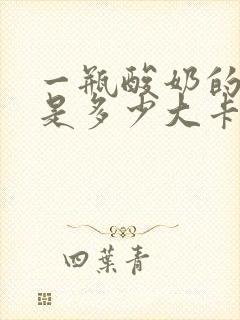 一瓶酸奶的
是多少大卡
四葉青